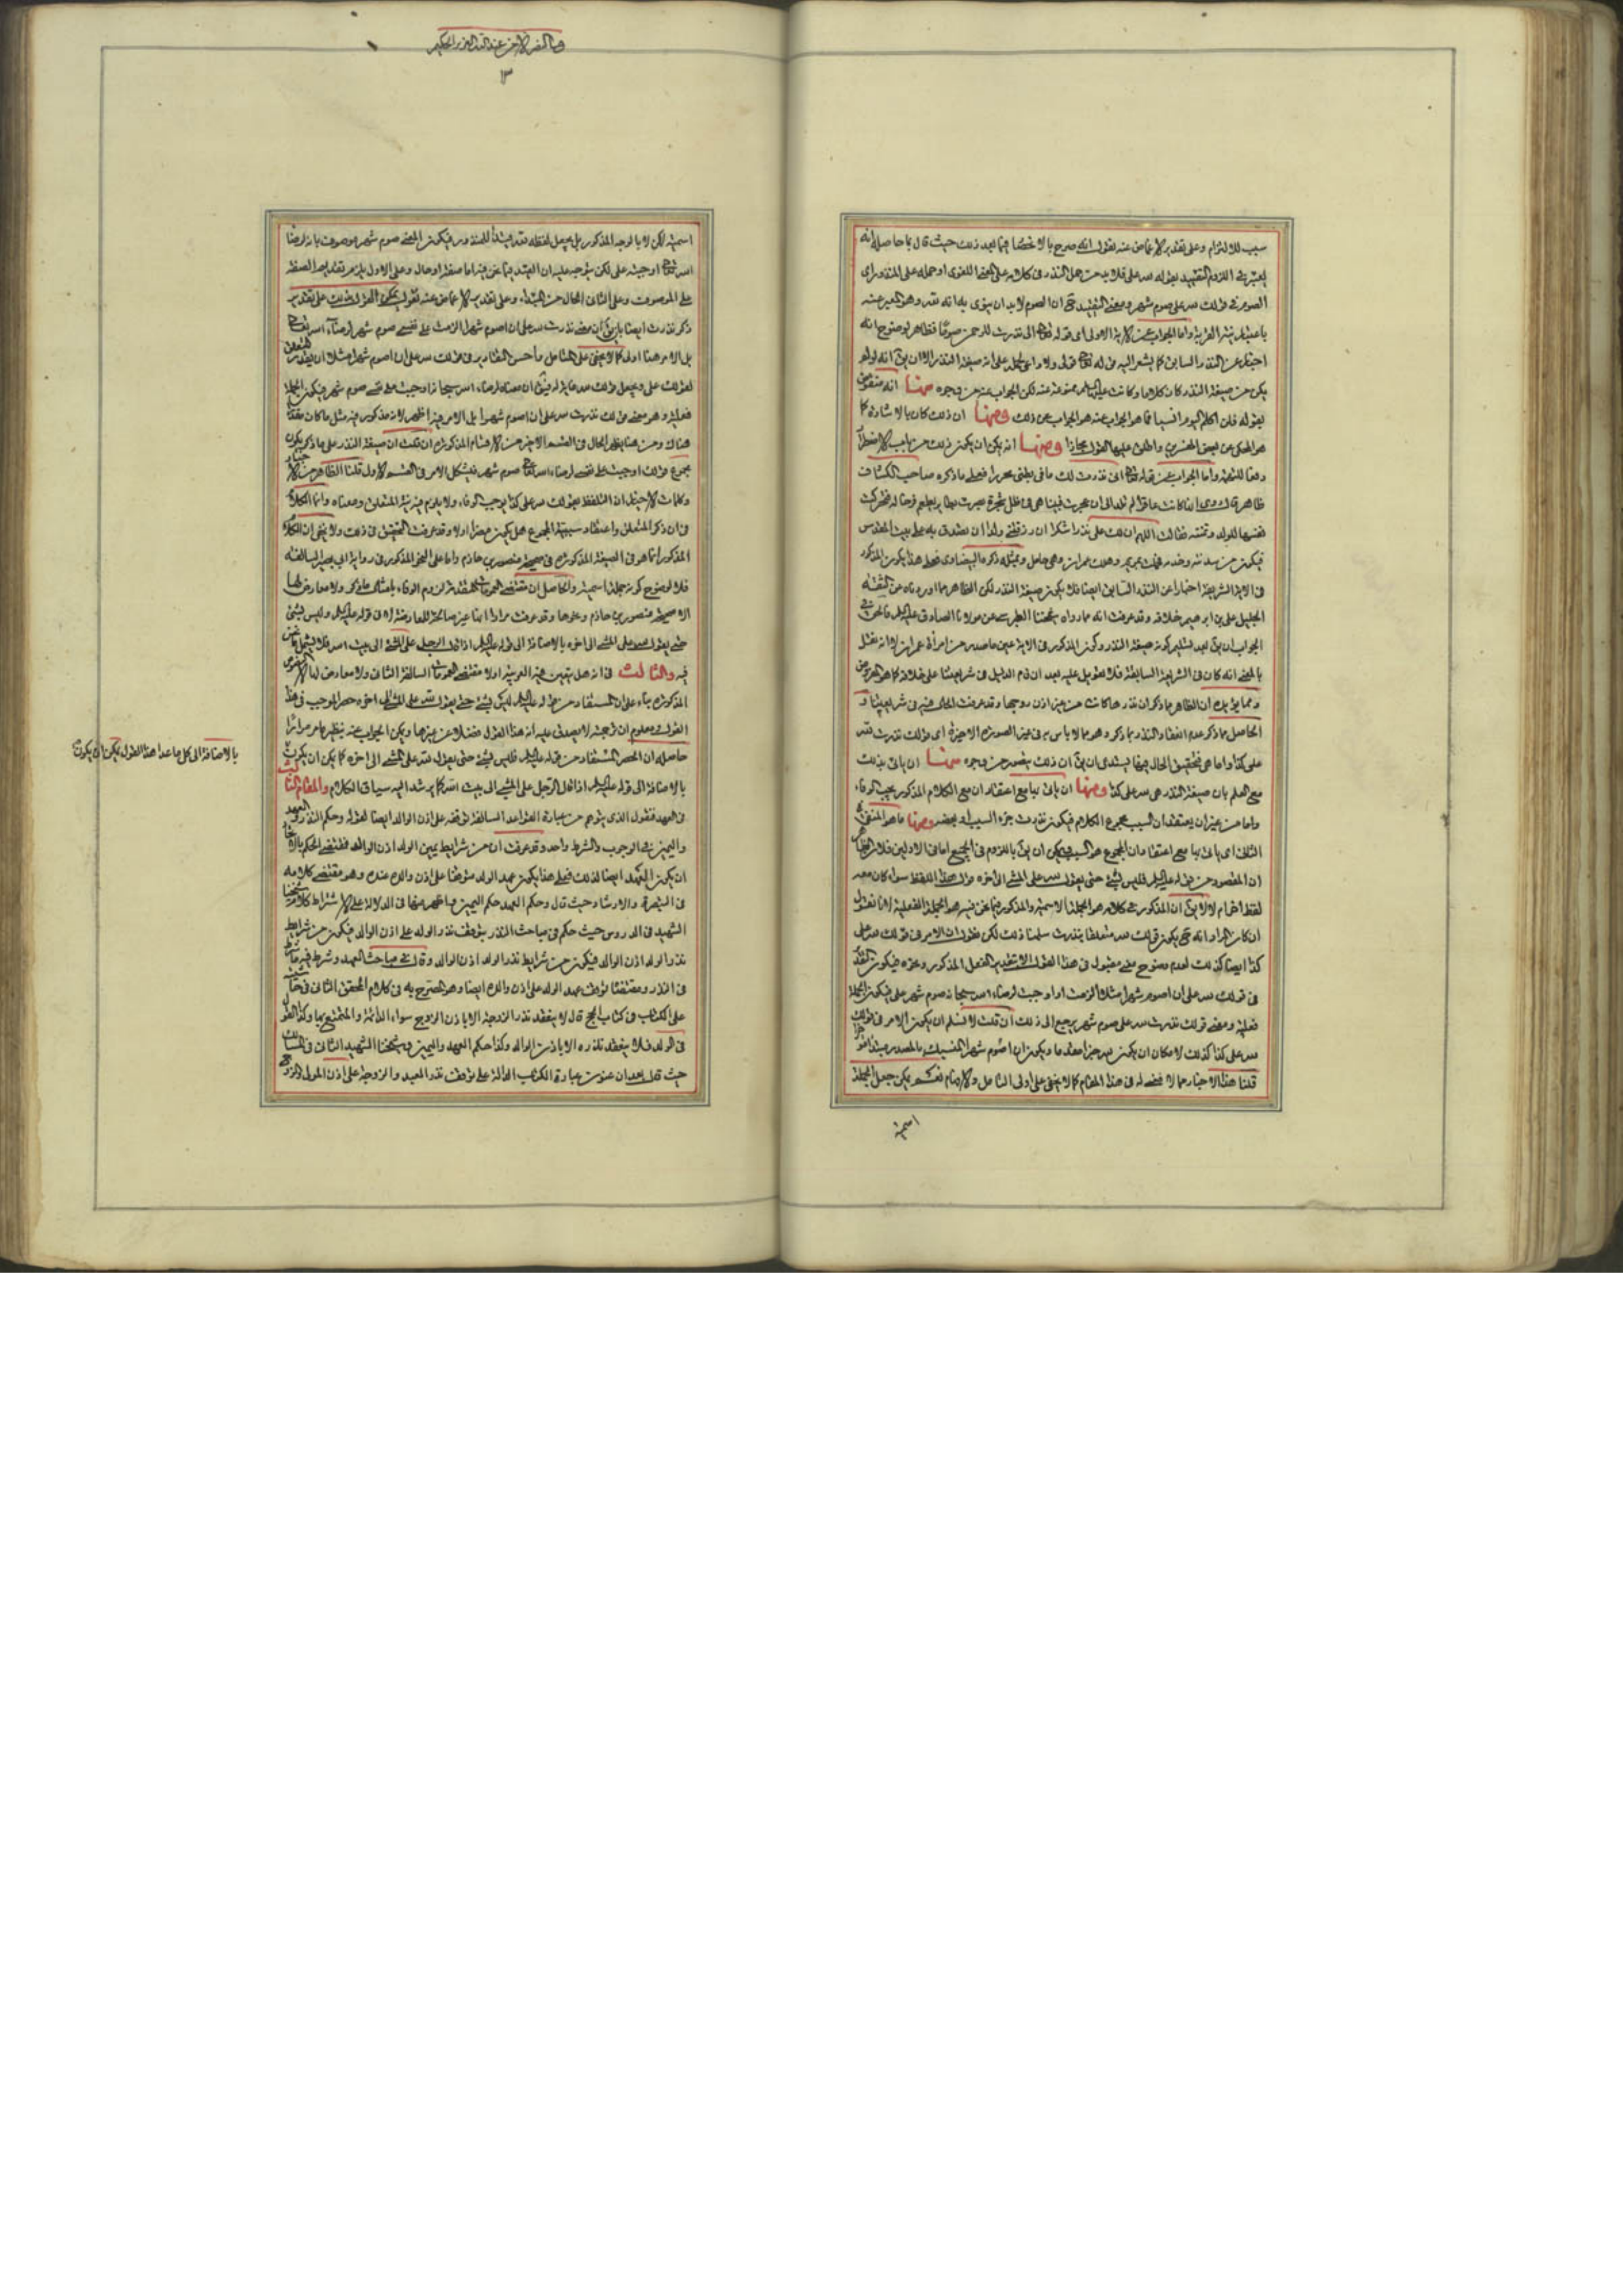 سبب للالتزام وعلى تقدير الاغماض عنه نقول انه صرح بالاختصاص فيما بعد ذلك حيث قال ما حاصله انه
يعتبر في اللزوم التقييد بقوله لله على فلابد من حمل النذر في كلامه على المعنى اللغوى او حمله على المنذور اى
الصوم في قولك لله على صوم شهر ومعنى التقييد ان الصوم لابد ان ينوى به انه نذر وهو المعبر عنه
باعتبار نية القربة واما الجواب عن الاية الاولى اى قوله تعالى انى نذرت للرحمن صوما فظاهر لوضوح انه
اخبار عن النذر السابق كما يشير اليه قوله تعالى قولى ولا داعى لحمله على انه صيغة النذر الا ان يق انه لو لم
يكن من صيغة النذر كان كلاما وكانت عليها السلم ممنوعة عنه لكن الجواب عنه من وجوه منها انه منقوض
بقوله فلن اكلم اليوم انسيا فما هو الجواب عنه هو الجواب عن ذلك ومنها ان ذلك كان بالاشارة كما
هو المحكى عن بعض المفسرين واطلق عليها القول مجازا ومنها انه يمكن ان يكون ذلك من باب الاضطرار
واما الجواب عن قوله تعالى انى نذرت لك ما في بطنى محررا فعلى ما ذكره صاحب الكشاف
ظاهر قال روى انها كانت عاقرا لم تلد الى ان عجزت فبينا هى في ظل شجرة بصرت بطاير يطعم فرخا له فتحركت
نفسها للولد وتمنته فقالت اللهم ان لك على نذرا شكرا ان رزقتنى ولدا ان اتصدق به على بيت المقدس
فيكون من سدنته وخدمه فحملت بمريم وهلك عمران وهى حامل وبمثله ذكره البيضاوى فعلى هذا يكون المذكور
في الاية الشريفة اخبارا عن النذر السابق ايضا فلا يكون صيغة النذر لكن الظاهر مما اورده من الثقة
الجليل على بن ابرهيم خلافه وقد عرفت انه مما رواه شيخنا الطبرسى عن مولانا الصادق عليه السلم
الجواب ان يق بعد تسليم كونه صيغة النذر وكون المذكور في الاية عين ما صدر من امرأة عمران انا نقول
بالمعنى انه كان في الشريعة السابقة فلا تعويل عليه بعد ان قام الدليل في شريعتنا على خلافه كما هو المفروض
ومما يؤيده ان الظاهر ما ذكر ان نذرها كانت من غير اذن زوجها وقد عرفت الحال فيه في شريعتنا و
الحاصل ما ذكر عدم انعقاد النذر بما ذكر وهو مما لا باس به في غير الصورة الاخيرة اى قولك نذرت لله
على كذا واما هى فتحقيق الحال فيها يستدعى ان يق ان ذلك يتصور من وجوه منها ان ياتى بذلك
مع العلم بان صيغة النذر هى لله على كذا ومنها ان ياتى بها مع اعتقاد ان مع الكلام المذكور يجب الوفاء
واما من غير ان يعتقد ان السبب مجموع الكلام فيكون نذرت جزء السبب او بعضه ومنها ما هو المنفى في
الثانى اى ياتى بها مع اعتقاد ان المجموع هو السبب فيمكن ان يق باللزوم في الجميع اما في الاولين فلان الظاهر
ان المقصود من قوله عليه السلم فليس بشئ حتى يقول لله على المشى الى اخره قول هذا اللفظ سواء كان معه
لفظ اخر ام لا لا يق ان المذكور في كلامه هو الجملة الاسمية والمذكور فيما نحن فيه هو الجملة الفعلية لانا نقول
ان كان المراد انه يكون قولك لله متعلقا بنذرت سلمنا ذلك لكن نقول ان الامر في قولك لله على
كذا ايضا كذلك لعدم وضوح معنى مقبول في هذا القول الا بتقدير الفعل المذكور ونحوه فيكون التقدير
في قولك لله على ان اصوم شهرا مثلا الزمت او اوجبت لرضاء الله سبحانه صوم شهر على فيكون الجملة
فعلية ومعنى قولك نذرت لله على صوم شهر يرجع الى ذلك ان قلت لا نسلم ان يكون الامر في قولك
لله على كذا كذلك لامكان ان يكون لله خبرا مقدما ويكون ان اصوم شهرا المنسبك بالمصدر مبتدأ مؤخرا
قلنا هذا الاخبار مما لا محصل له في هذا المقام كما لا يخفى على اولى التامل والافهام نعم يمكن جعل الجملة
اسمية
هنا السفر الاخر عند الله العزيز الحكيم
١٣
اسمية لكن لا بالوجه المذكور بل بجعل لفظة نذر مبتدأ للمنذور فيكون المعنى صوم شهر موصوف بانه لرضاء
الله تعالى اوجبته على لكن يتوجه عليه ان القيد فيما نحن فيه اما صفة او حال وعلى الاول يلزم تقديم الصفة
على الموصوف وعلى الثانى الحال من المبتدأ وعلى تقدير الاغماض عنه نقول يمكن القول بذلك على تقدير
ذكر نذرت ايضا بان يق ان معنى نذرت لله على ان اصوم شهرا الزمت على نفسى صوم شهر لرضاء الله تعالى
بل الامر هنا اولى كما لا يخفى على المتامل واحسن التقادير في قولك لله على ان اصوم شهرا مثلا ان يقدر المتعلق
لقولك على ويجعل قولك لله غاية له فيق ان معناه لرضاء الله سبحانه اوجبت على نفسى صوم شهر فيكون الجملة
فعلية وهو معنى قولك نذرت لله على ان اصوم شهرا بل الامر فيه اظهر لانه مذكور فيه مثل ما كان مقدرا
هناك ومن هنا يظهر الحال في القسم الاخير من الاقسام المذكورة ان قلت ان صيغة النذر على ما ذكر يكون
مجموع قولك اوجبت على نفسى لرضاء الله تعالى صوم شهر فيشكل الامر في القسم الاول قلنا الظاهر من الاخبار
وكلمات الاخيار ان التلفظ بقولك لله على كذا يوجب الوفاء ولا يلزم فيه نية المتعلق ومعناه وانما الكلام
في ان ذكر المتعلق واعتقاد سببية المجموع هل يكون مضرا او لا وقد عرفت التحقيق في ذلك ولا يخفى ان الكلام
المذكور انما هو في الصيغة المذكورة في صحيحة منصور بن حازم واما على النحو المذكور في رواية ابى بصير السالفة
فلا لوضوح كونه جملة اسمية والحاصل ان مقتضى العمومات المتقدمة لزوم الوفاء بامثال ما ذكر ولا معارض لها
الا صحيحة منصور بن حازم ونحوها وقد عرفت مرارا انها غير صالحة للمعارضة لان قوله عليه السلم وليس بشئ
حتى يقول لله على المشى الى اخره بالاضافة الى قوله عليه السلم اذا قال الرجل على المشى الى بيت الله فلا يشمل ما نحن
فيه والثالث في انه هل يتعين فيه العربية او لا مقتضى العمومات السالفة الثانى ولا معارض لها الا النصوص
المذكورة بناء على ان المستفاد من قوله عليه السلم ليس بشئ حتى يقول لله على المشى الى اخره حصر الموجب في هذا
القول ومعلوم ان ترجمته لا يصدق عليه انه هذا القول فضلا عن غيرها ويمكن الجواب عنه بنظير ما مر مرارا
حاصله ان الحصر المستفاد من قوله عليه السلم فليس بشئ حتى يقول لله على المشى الى اخره كما يمكن ان يكون
بالاضافة الى كل ما عدا هذا القول يمكن ان يكون
بالاضافة الى قوله عليه السلم اذا قال الرجل على المشى الى بيت الله كما يرشد اليه سياق الكلام والمقام الثالث
في العهد فنقول الذى يتوهم من عبارة القواعد السالفة توقفه على اذن الوالد ايضا لقوله وحكم النذر والعهد
واليمين في الوجوب والشرط واحد وقد عرفت ان من شرايط يمين الولد اذن الوالد فمقتضى الحكم بالاتحاد
ان يكون العهد ايضا كذلك فعلى هذا يكون عهد الولد متوقفا على اذن والده عنده وهو مقتضى كلامه
في التبصرة والارشاد حيث قال وحكم العهد حكم اليمين واظهر منها في الدلالة على الاشتراط كلام شيخنا
الشهيد في الدروس حيث حكم في مباحث النذر بتوقف نذر الولد على اذن الوالد فيكون من شرايط
نذر الولد اذن الوالد فيكون من شرايط نذر الولد اذن الوالد وقال في مباحث العهد وشرطه فيه ما مر
في النذر ومقتضاه توقف عهد الولد على اذن والده ايضا وهو المصرح به في كلام المحقق الثانى في حاشيته
على الكتاب في كتاب الحج قال لا ينعقد نذر الزوجة الا باذن الزوج سواء الدائمة والمتمتع بها وكذا القول
في الولد فلا ينعقد نذره الا باذن الوالد وكذا حكم العهد واليمين وشيخنا الشهيد الثانى في المسالك
حيث قال بعد ان عنون عبارة الكتاب الدالة على توقف نذر العبد والزوجة على اذن المولى والزوج